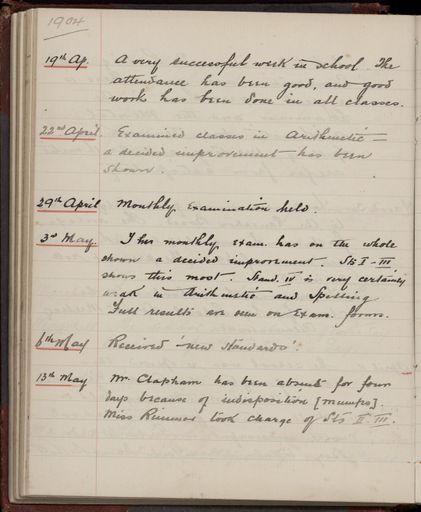 1904
19th Ap. A very successful week in school. The
attendance has been good, and good
work has been done in all classes.
22nd April. Examined classes in Arithmetic –
a decided improvement has been
shown.
29th April Monthly Examination held.
3rd May. This monthly exam. has on the whole
shown a decided improvement. Sts I - III
shows this most. Stand. IV is very certainly
weak in Arithmetic and Spelling.
Full results are seen on Exam. forms.
6th May Received new Standards.
13th May Mr. Clapham has been absent for four
days because of indisposition [mumps].
Miss Rimmer took charge of Sts II. III.